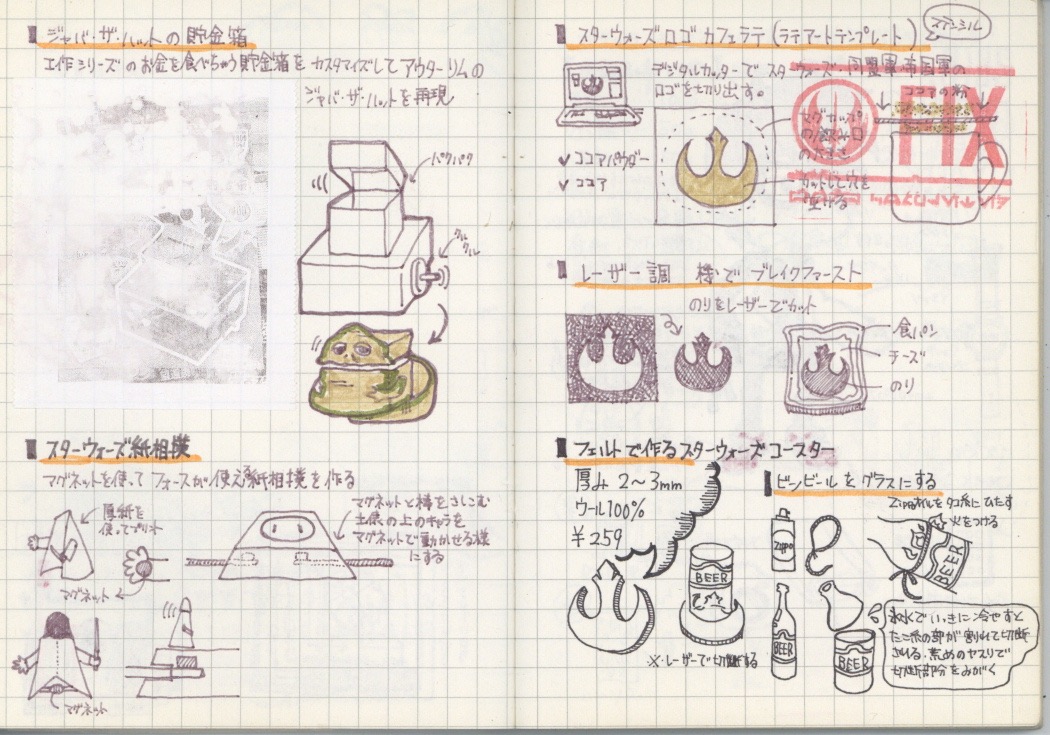 ジャバ・ザ・ハットの貯金箱
工作シリーズのお金を食べちゃう貯金箱をカスタマイズしてアウターリムの
ジャバ・ザ・ハットを再現
パクパク
クルクル
スターウォーズ紙相撲
マグネットを使ってフォースが使える紙相撲を作る
厚紙を
使ってプリント
マグネット
マグネットと棒をさしこむ
土俵の上のキャラを
マグネットで動かせる様
にする
マグネット
スターウォーズロゴカフェラテ(ラテアートテンプレート)
ステンシル
デジタルカッターでスターウォーズ・同盟軍・帝国軍の
ロゴを切り出す。
ココアの粉
✓ココアパウダー
✓ココア
マグカップ
の飲み口
の大きさ
カットして穴を
レーザー調 機でブレイクファースト
のりをレーザーでカット
食パン
チーズ
のり
フェルトで作るスターウォーズコースター
厚み2〜3mm
ウール100%
¥259
BEER
※レーザーで切断する
ビンビールをグラスにする
Zippoオイルをタコ糸にひたす
火をつける
Zippo
BEER
BEER
BEER
氷水でいっきに冷やすと
たこ糸の部分が割れて切断
される.荒めのヤスリで
切断部分をみがく